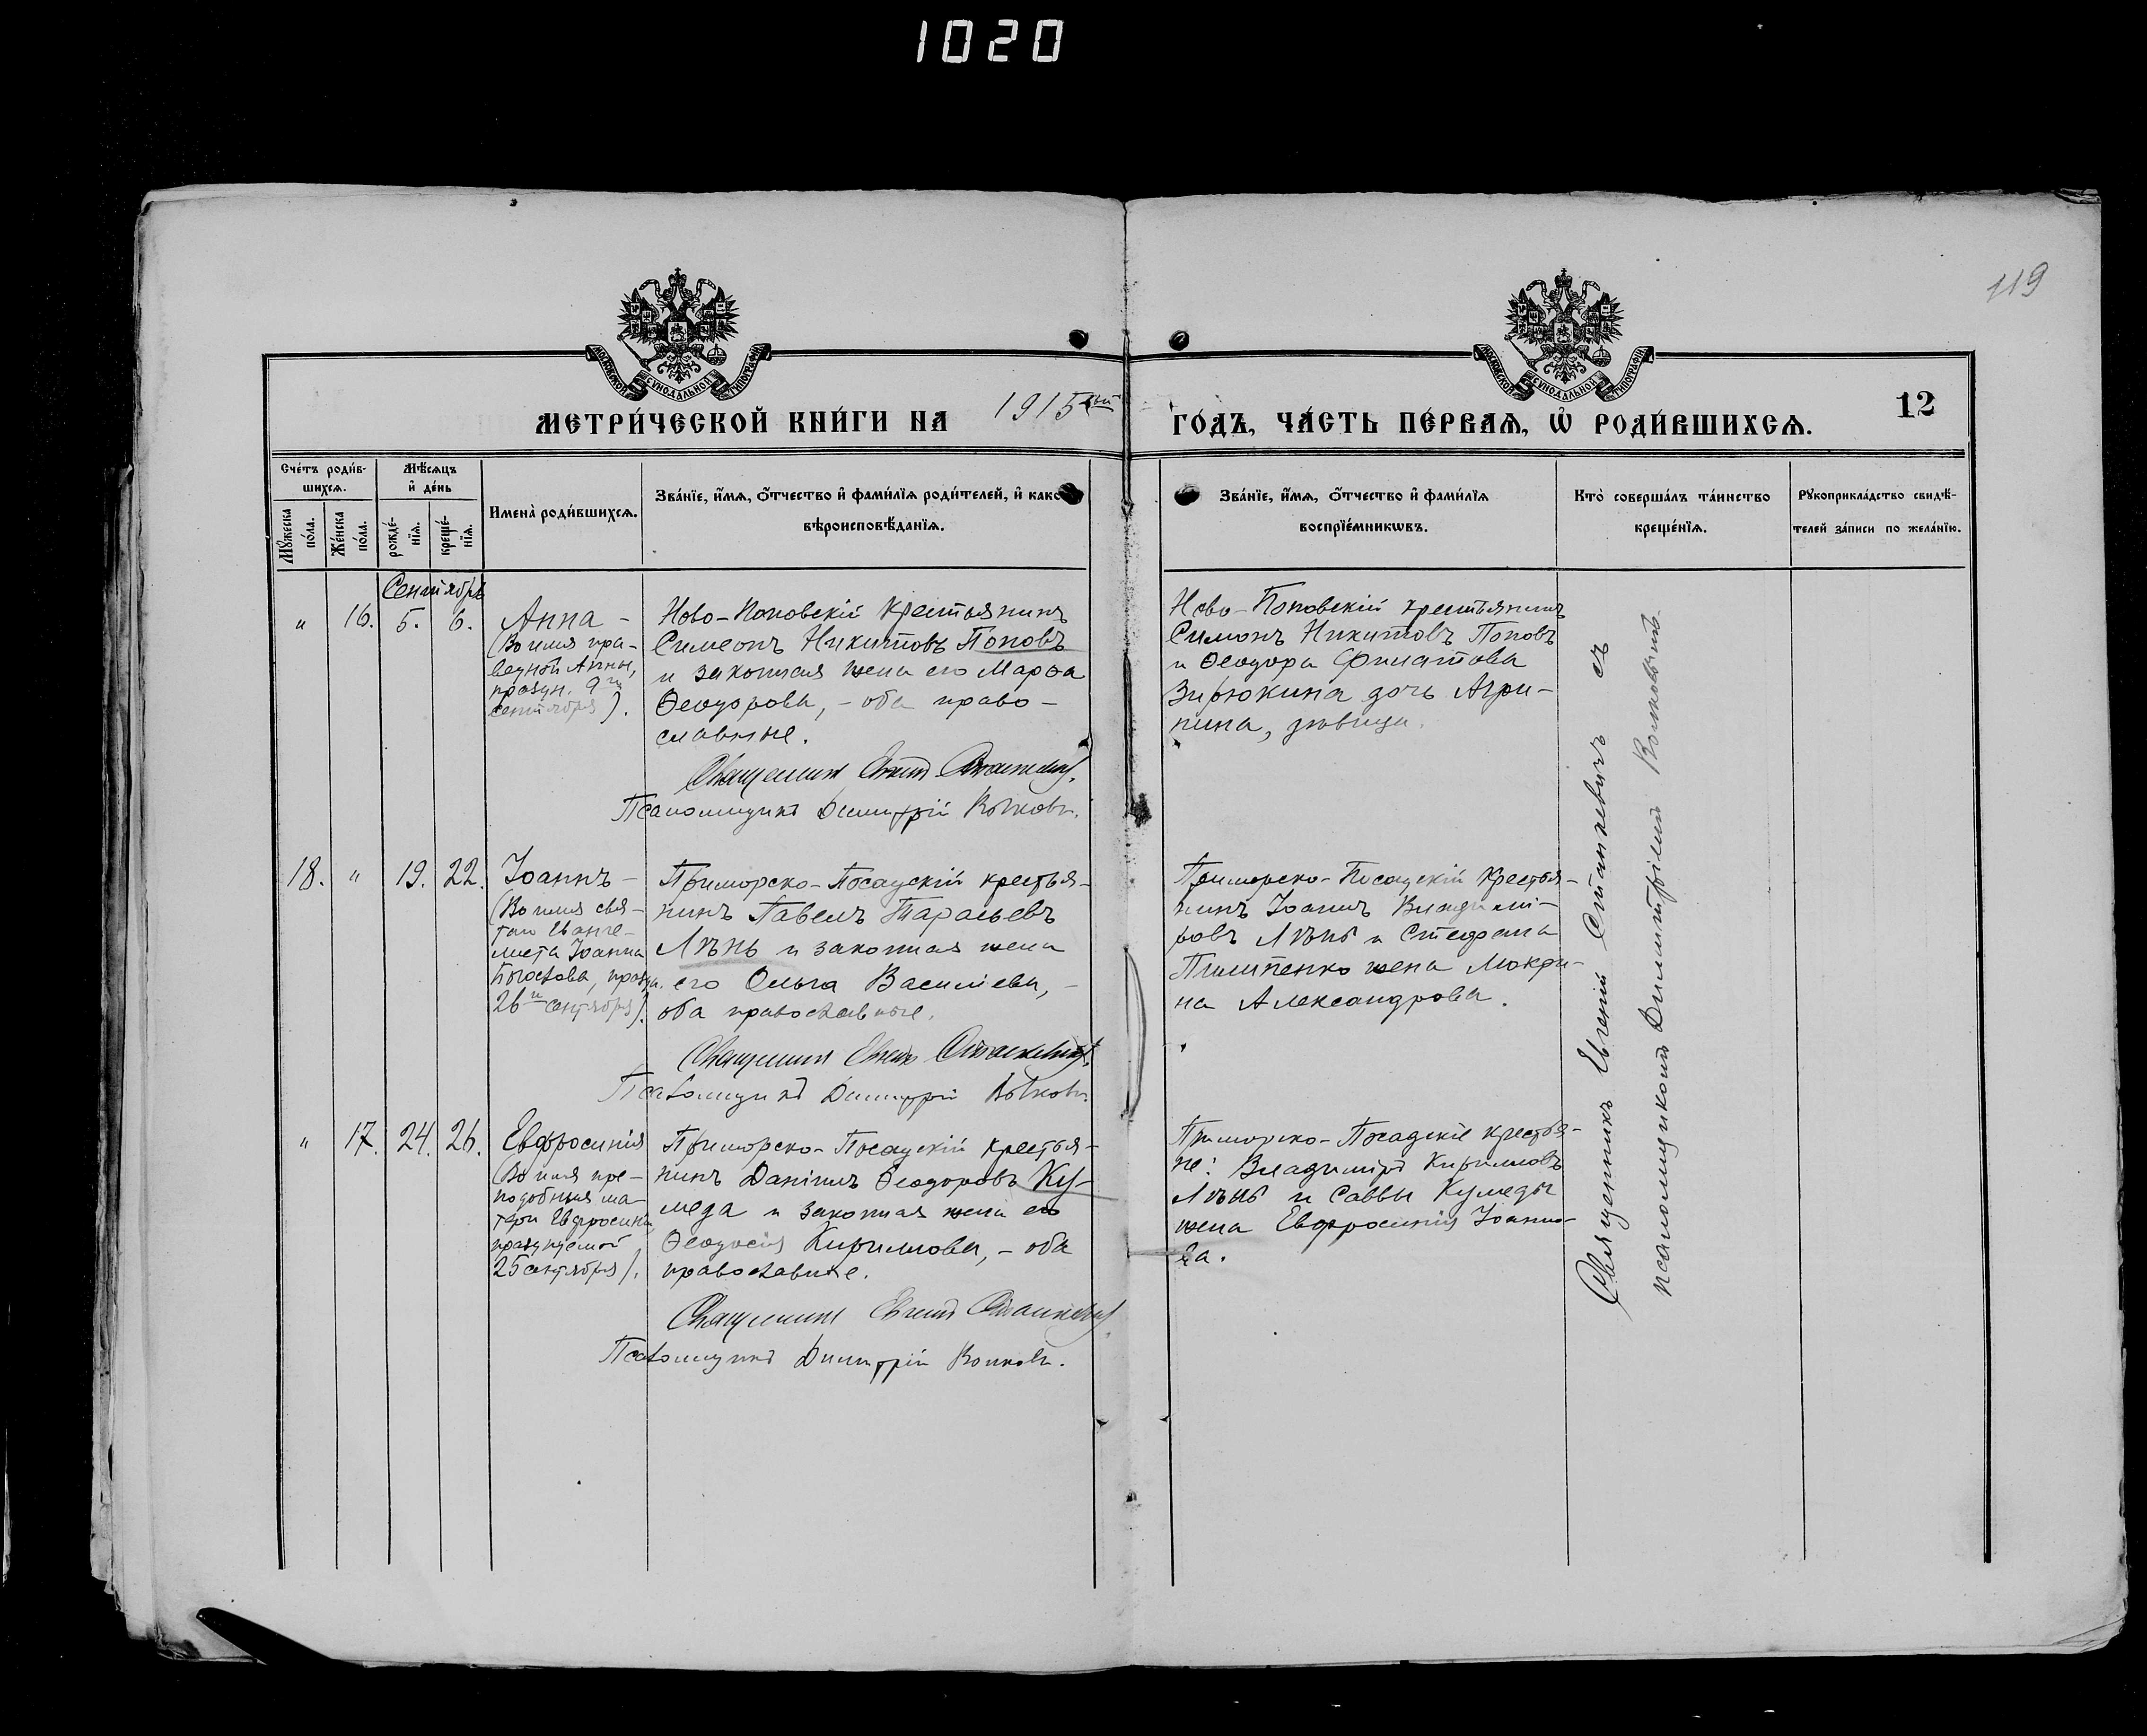 1020
119
МОСКОВСКОЙ СУНОДАЛЬНОЙ ТИПОГРАФІИ
МОСКОВСКОЙ СУНОДАЛЬНОЙ ТИПОГРАФІИ
МЕТРИ́ЧЕСКОЙ КНИ́ГИ НА 1915ый ГО́ДЪ, ЧА́СТЬ ПЕ́РВАѦ, Ѡ҆ РОДИ́ВШИХСѦ. 12
Сче́тъ роди́в-
шихсѧ.
Мꙋ́жеска
по́ла.
Же́нска
по́ла.
Мѣ́сѧцъ
и҆ де́нь
рожде́-
нїѧ.
креще́-
нїѧ.
Имена̀ роди́вшихсѧ.
Зва́нїе, и҆́мѧ, ѻ҆́тчество и҆ фами́лїѧ роди́телей, и҆ како
вѣроисповѣ́данїѧ.
Зва́нїе, и҆́мѧ, ѻ҆́тчество и҆ фами́лїѧ
воспрїе́мникѡвъ.
Кто̀ соверша́лъ та́инство
креще́нїѧ.
Рꙋкоприкла́дство свидѣ́-
телей за́писи по жела́нїю.
Сентябрь
" 16. 5. 6.
Анна -
(Во имя пра-
ведной Анны,
праздн. 9го
сентября).
Ново-Поповскій крестьянинъ
Симеонъ Никитовъ Поповъ
и законная жена его Марѳа
Ѳеодорова, - оба право-
славные.
Священникъ Евгеній Станкевичъ.
Псаломщикъ Димитрій Волковъ.
Ново-Поповскій крестьянинъ
Симонъ Никитовъ Поповъ
и Ѳеодора Филатова
Зирюкина дочь Агри-
пина, дѣвица.
18. " 19. 22.
Іоаннъ -
(Во имя свя-
таго Еванге-
листа Іоанна
Богослова, праздн.
26го сентября).
Приморско-Посадскій крестья-
нинъ Павелъ Тарасьевъ
Лѣнь и законная жена
его Ольга Василіева, -
оба православные.
Священникъ Евгеній Станкевичъ.
Псаломщикъ Димитрій Волковъ.
Приморско-Посадскій крестья-
нинъ Іоаннъ Владимі-
ровъ Лѣнь и Стефана
Пилипенко жена Макри-
на Александрова.
" 17. 24. 26.
Евфросинія
(Во имя пре-
подобныя ма-
тери Евфросиніи,
празднуемой
25 сентября).
Приморско-Посадскій крестья-
нинъ Даніилъ Ѳеодоровъ Ку-
меда и законная жена его
Ѳеодосія Кириллова, - оба
православные.
Священникъ Евгеній Станкевичъ.
Псаломщикъ Димитрій Волковъ.
Приморско-Посадскіе крестья-
не: Владиміръ Кирилловъ
Лѣнь и Саввы Кумеды
жена Евфросинія Іоанно-
ва.
Священникъ Евгеній Станкевичъ съ
псаломщикомъ Димитріемъ Волковымъ.